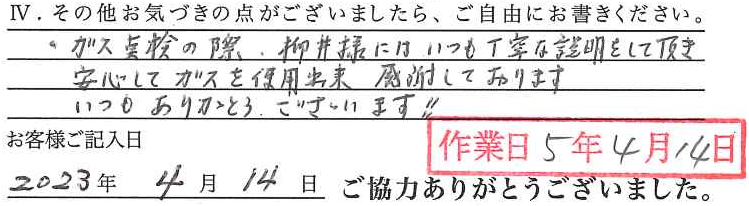 Ⅳ．その他お気づきの点がございましたら、ご自由にお書きください。
・ガス点検の際、柳井様にはいつも丁寧な説明をして頂き
安心してガスを使用出来 感謝しております
いつもありがとうございます!!
お客様ご記入日
作業日 5年4月14日
2023年 4月 14日 ご協力ありがとうございました。